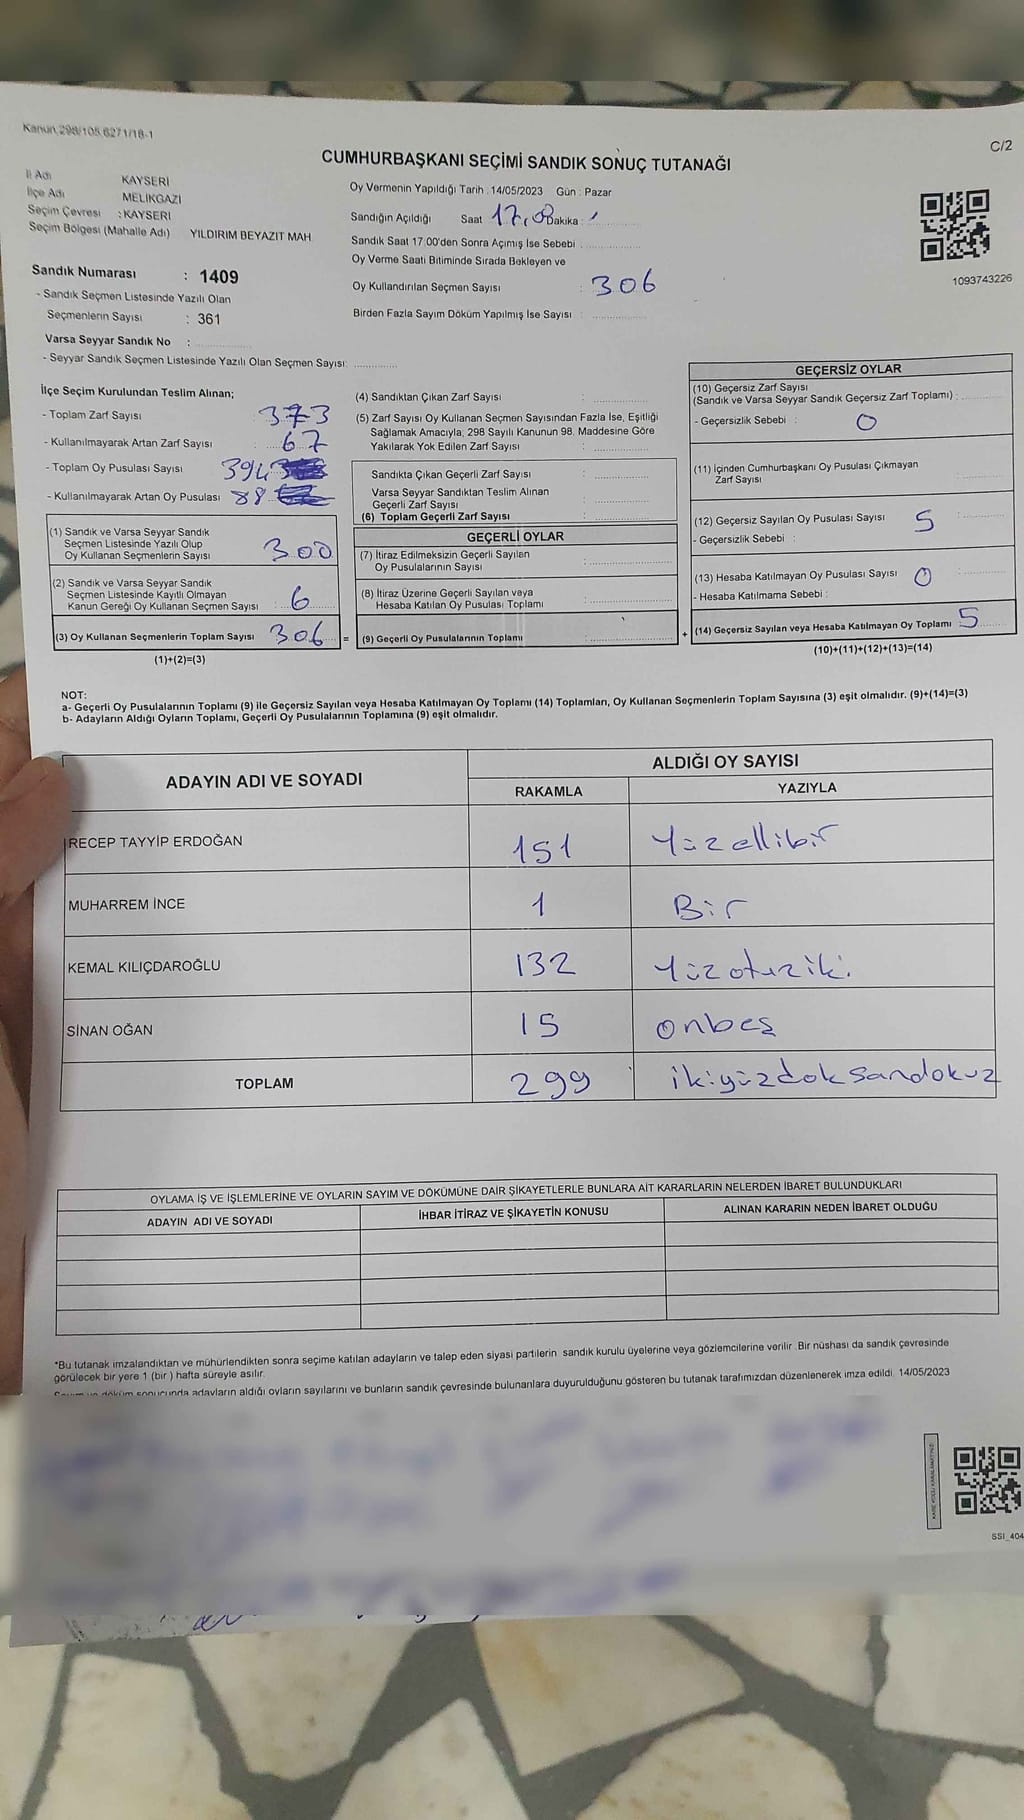 Kanun,298/105,6271/18-1
C/2
CUMHURBAŞKANI SEÇİMİ SANDIK SONUÇ TUTANAĞI
İl Adı KAYSERİ
İlçe Adı MELİKGAZİ
Seçim Çevresi : KAYSERİ
Seçim Bölgesi (Mahalle Adı) YILDIRIM BEYAZIT MAH
Oy Vermenin Yapıldığı Tarih : 14/05/2023 Gün : Pazar
Sandığın Açıldığı Saat 17,00 Dakika :
Sandık Saat 17:00'den Sonra Açımış İse Sebebi :
Oy Verme Saati Bitiminde Sırada Bekleyen ve
Oy Kullandırılan Seçmen Sayısı : 306
Birden Fazla Sayım Döküm Yapılmış İse Sayısı :
1093743226
Sandık Numarası : 1409
- Sandık Seçmen Listesinde Yazılı Olan
Seçmenlerin Sayısı : 361
Varsa Seyyar Sandık No :
- Seyyar Sandık Seçmen Listesinde Yazılı Olan Seçmen Sayısı:
İlçe Seçim Kurulundan Teslim Alınan;
- Toplam Zarf Sayısı 373
- Kullanılmayarak Artan Zarf Sayısı 67
- Toplam Oy Pusulası Sayısı 394
- Kullanılmayarak Artan Oy Pusulası 88
(1) Sandık ve Varsa Seyyar Sandık
Seçmen Listesinde Yazılı Olup
Oy Kullanan Seçmenlerin Sayısı 300
(2) Sandık ve Varsa Seyyar Sandık
Seçmen Listesinde Kayıtlı Olmayan
Kanun Gereği Oy Kullanan Seçmen Sayısı : 6
(3) Oy Kullanan Seçmenlerin Toplam Sayısı 306 =
(1)+(2)=(3)
(4) Sandıktan Çıkan Zarf Sayısı :
(5) Zarf Sayısı Oy Kullanan Seçmen Sayısından Fazla İse, Eşitliği
Sağlamak Amacıyla, 298 Sayılı Kanunun 98. Maddesine Göre
Yakılarak Yok Edilen Zarf Sayısı :
Sandıkta Çıkan Geçerli Zarf Sayısı :
Varsa Seyyar Sandıktan Teslim Alınan
Geçerli Zarf Sayısı :
(6) Toplam Geçerli Zarf Sayısı :
GEÇERLİ OYLAR
(7) İtiraz Edilmeksizin Geçerli Sayılan
Oy Pusulalarının Sayısı :
(8) İtiraz Üzerine Geçerli Sayılan veya
Hesaba Katılan Oy Pusulası Toplamı :
(9) Geçerli Oy Pusulalarının Toplamı : +
GEÇERSİZ OYLAR
(10) Geçersiz Zarf Sayısı
(Sandık ve Varsa Seyyar Sandık Geçersiz Zarf Toplamı) :
- Geçersizlik Sebebi : 0
(11) İçinden Cumhurbaşkanı Oy Pusulası Çıkmayan
Zarf Sayısı :
(12) Geçersiz Sayılan Oy Pusulası Sayısı 5 :
- Geçersizlik Sebebi :
(13) Hesaba Katılmayan Oy Pusulası Sayısı 0 :
- Hesaba Katılmama Sebebi :
(14) Geçersiz Sayılan veya Hesaba Katılmayan Oy Toplamı 5
(10)+(11)+(12)+(13)=(14)
NOT:
a- Geçerli Oy Pusulalarının Toplamı (9) ile Geçersiz Sayılan veya Hesaba Katılmayan Oy Toplamı (14) Toplamları, Oy Kullanan Seçmenlerin Toplam Sayısına (3) eşit olmalıdır. (9)+(14)=(3)
b- Adayların Aldığı Oyların Toplamı, Geçerli Oy Pusulalarının Toplamına (9) eşit olmalıdır.
ADAYIN ADI VE SOYADI
ALDIĞI OY SAYISI
RAKAMLA YAZIYLA
RECEP TAYYİP ERDOĞAN 151 Yüzellibir
MUHARREM İNCE 1 Bir
KEMAL KILIÇDAROĞLU 132 Yüzotuziki
SİNAN OĞAN 15 onbeş
TOPLAM 299 ikiyüzdoksandokuz
OYLAMA İŞ VE İŞLEMLERİNE VE OYLARIN SAYIM VE DÖKÜMÜNE DAİR ŞİKAYETLERLE BUNLARA AİT KARARLARIN NELERDEN İBARET BULUNDUKLARI
ADAYIN ADI VE SOYADI İHBAR İTİRAZ VE ŞİKAYETİN KONUSU ALINAN KARARIN NEDEN İBARET OLDUĞU
*Bu tutanak imzalandıktan ve mühürlendikten sonra seçime katılan adayların ve talep eden siyasi partilerin sandık kurulu üyelerine veya gözlemcilerine verilir. Bir nüshası da sandık çevresinde
görülecek bir yere 1 (bir) hafta süreyle asılır.
Sayım ve döküm sonucunda adayların aldığı oyların sayılarını ve bunların sandık çevresinde bulunanlara duyurulduğunu gösteren bu tutanak tarafımızdan düzenlenerek imza edildi. 14/05/2023
SSI_404